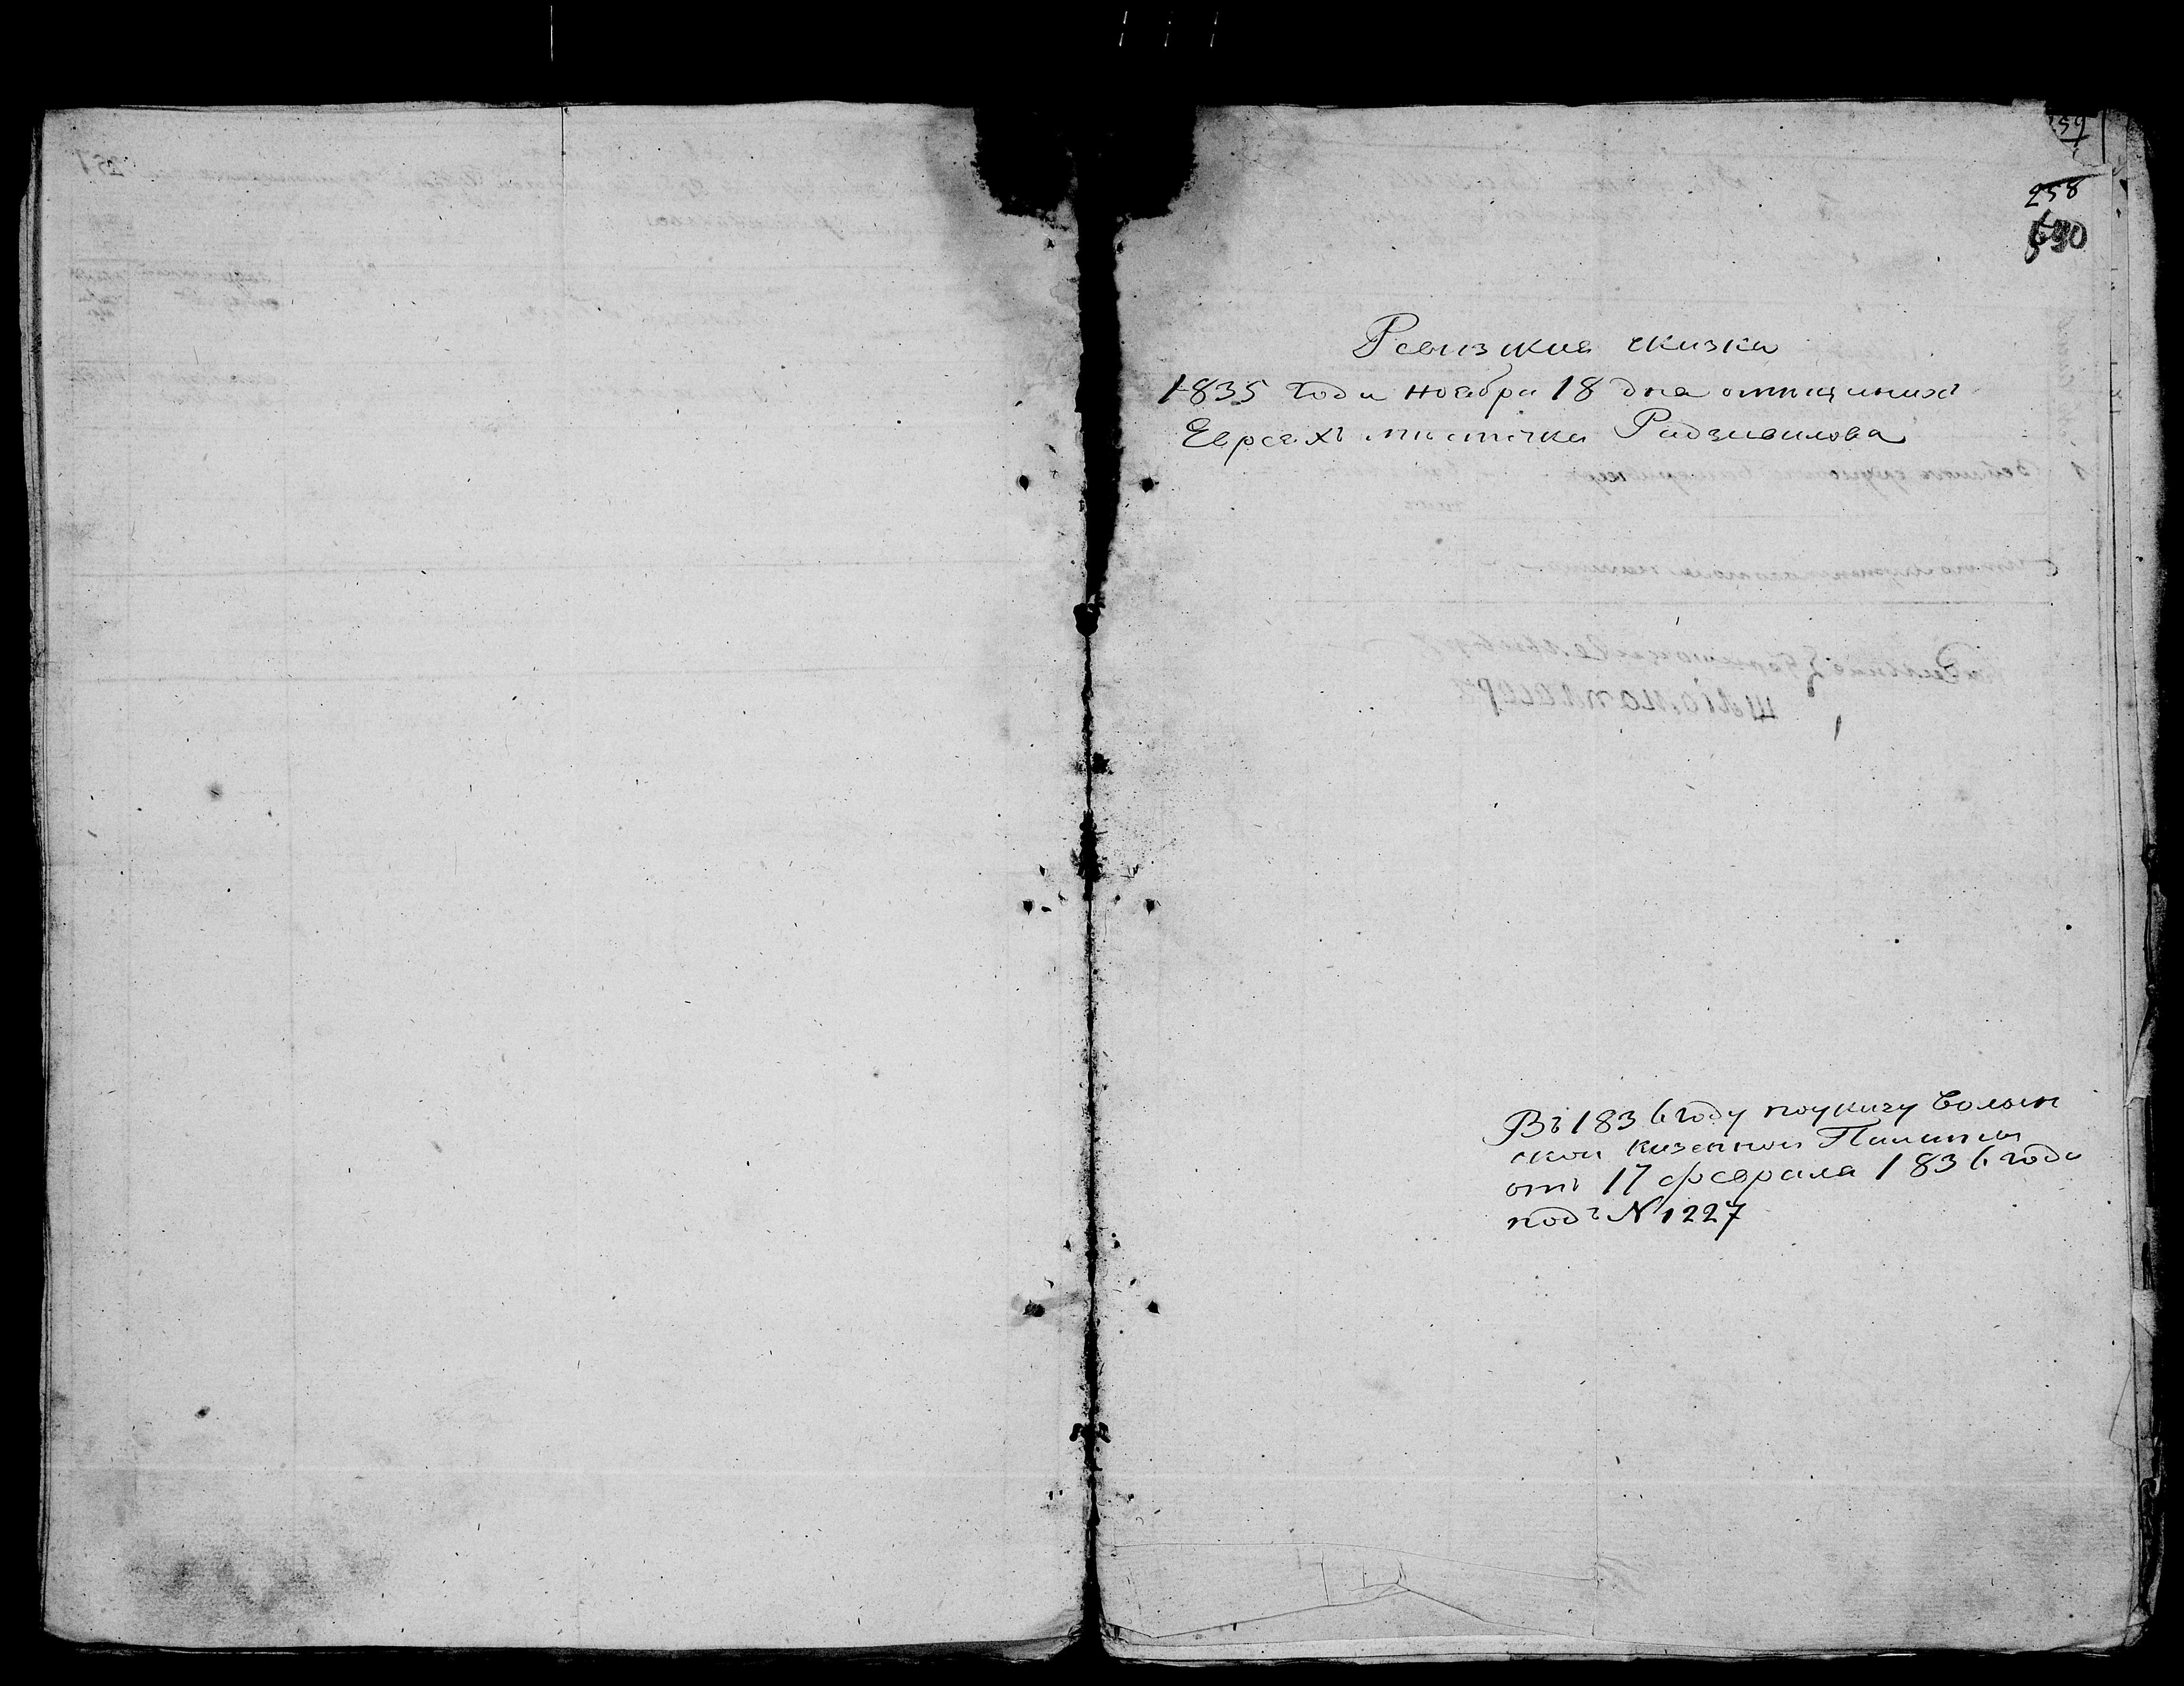 258
690
Ревизкия сказка
1835 года ноября 18 дня
Евреяхъ местечка Радзивилова
Въ 1836 году по указу Волын
ской казенной Палаты
отъ 17 февраля 1836 года
подъ N 1227